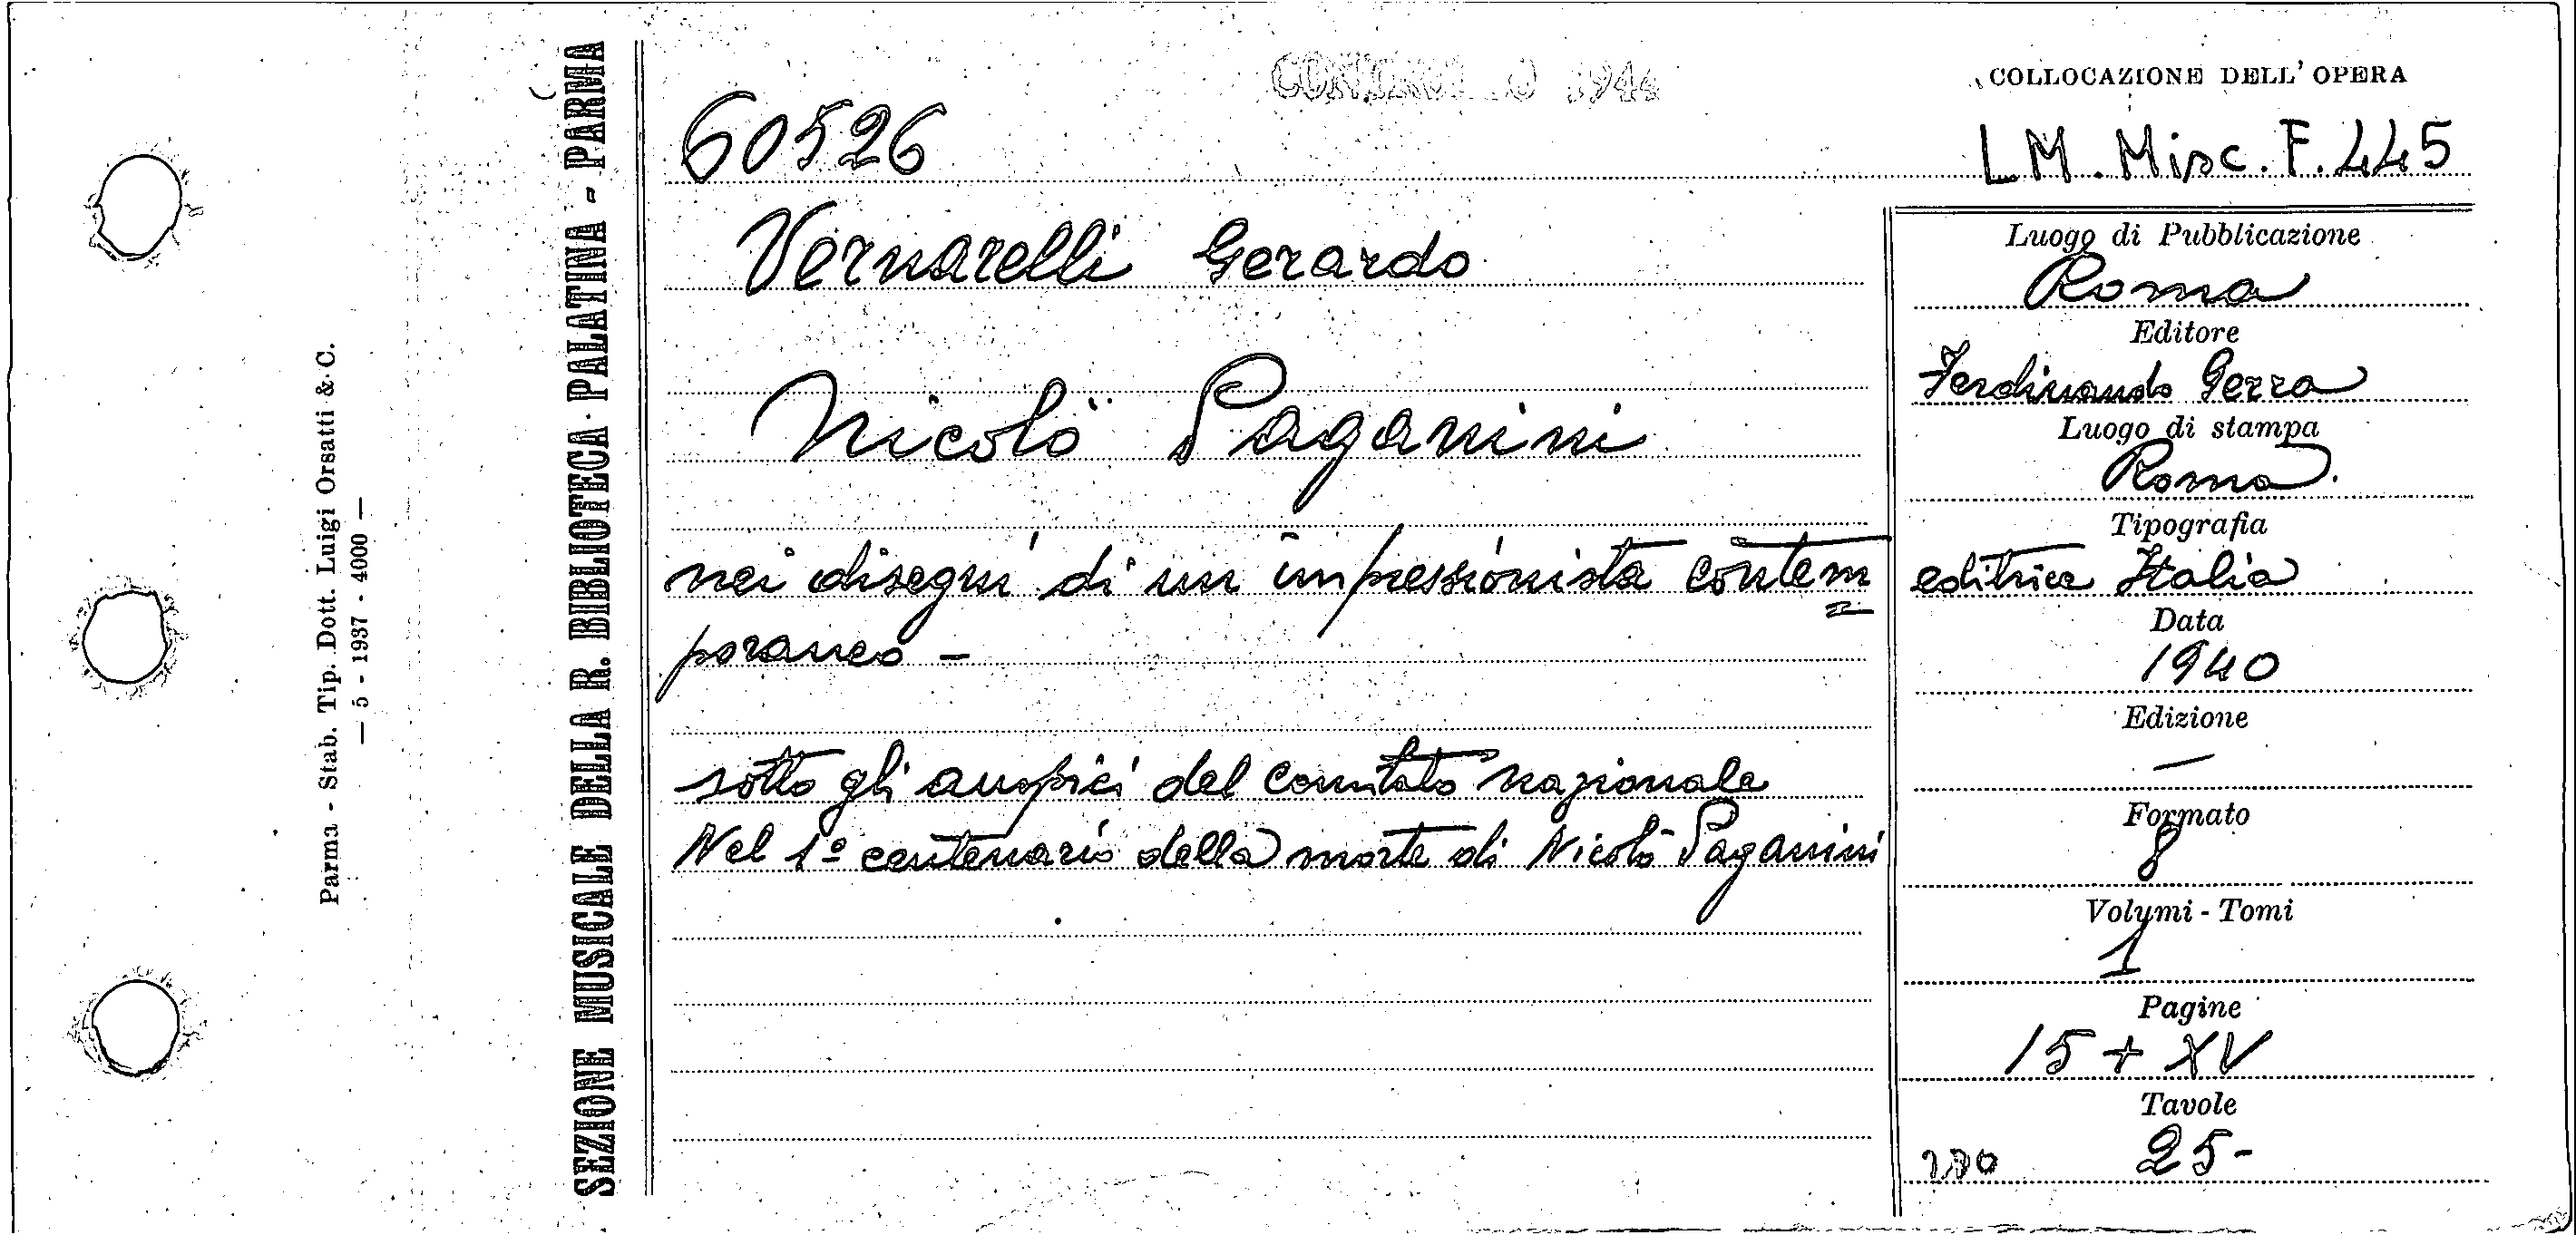 Parma - Stab. Tip. Dott. Luigi Orsatti & C.
— 5 - 1937 - 4000 —
SEZIONE MUSICALE DELLA R. BIBLIOTECA PALATINA - PARMA
CONTROLLO 1944
COLLOCAZIONE DELL' OPERA
60526
LM. Misc. F. 445
Vernarelli Gerardo
Nicolò Paganini
nei disegni di un impressionista contem
poraneo -
sotto gli auspici del comitato nazionale
Nel 1º centenario della morte di Nicolò Paganini
Luogo di Pubblicazione
Roma
Editore
Ferdinando Gerra
Luogo di stampa
Roma.
Tipografia
editrice Italia
Data
1940
Edizione
—
Formato
8
Volumi - Tomi
1
Pagine
15 + XV
Tavole
25-